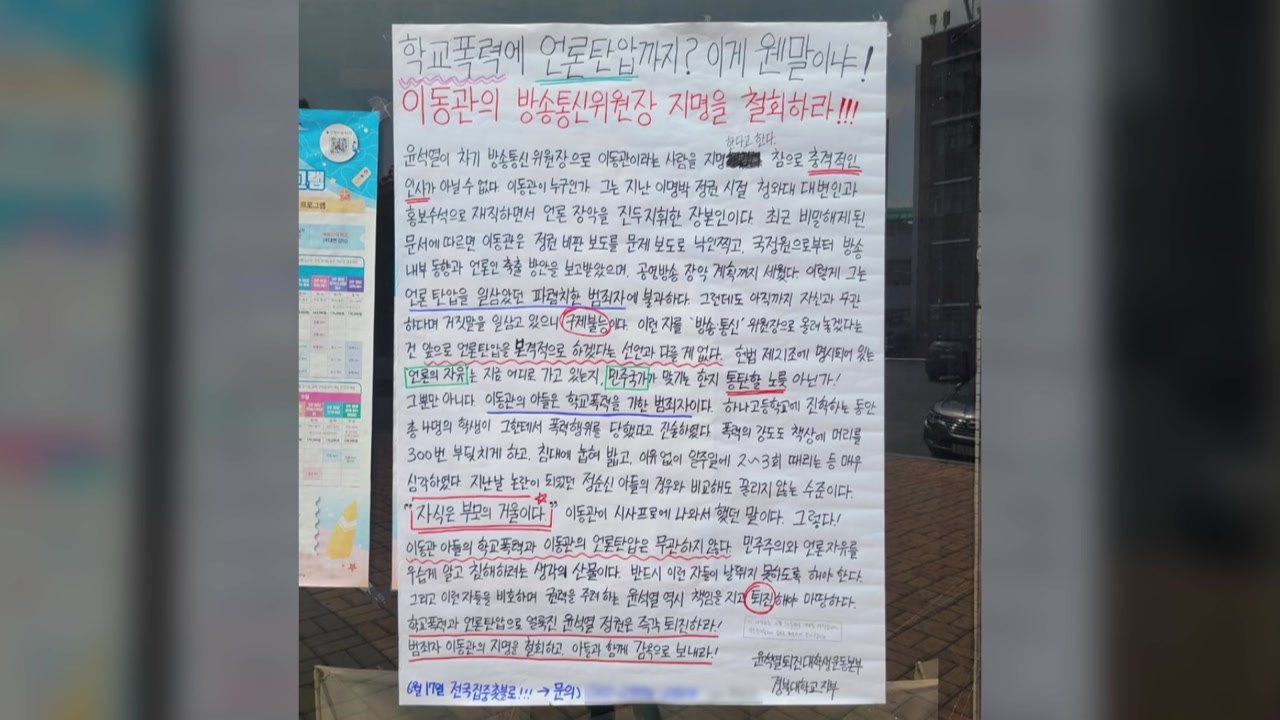 학교폭력에 언론탄압까지? 이게 웬말이냐!
이동관의 방송통신위원장 지명을 철회하라!!!
한다고 한다.
윤석열이 차기 방송통신위원장으로 이동관이라는 사람을 지명 참으로 충격적인
인사가 아닐 수 없다. 이동관이 누구인가. 그는 지난 이명박 정권 시절 청와대 대변인과
홍보수석으로 재직하면서 언론 장악을 진두지휘한 장본인이다. 최근 비밀해제된
문서에 따르면 이동관은 정권 비판 보도를 문제 보도로 낙인찍고, 국정원으로부터 방송
내부 동향과 언론인 축출 방안을 보고받았으며, 공영방송 장악 계획까지 세웠다. 이렇게 그는
언론 탄압을 일삼았던 파렴치한 범죄자에 불과하다. 그런데도 아직까지 자신과 무관
하다며 거짓말을 일삼고 있으니 구제불능이다. 이런 자를 '방송통신' 위원장으로 올려놓겠다는
건 앞으로 언론탄압을 본격적으로 하겠다는 선언과 다를 게 없다. 헌법 제21조에 명시되어 있는
언론의 자유는 지금 어디로 가고 있는지, 민주국가가 맞기는 한지 통탄할 노릇 아닌가!
그뿐만 아니다. 이동관의 아들은 학교폭력을 가한 범죄자이다. 하나고등학교에 진학하는 동안
총 4명의 학생이 그한테서 폭력행위를 당했다고 진술하였다. 폭력의 강도도 책상에 머리를
300번 부딪치게 하고, 침대에 눕혀 밟고, 이유없이 일주일에 2~3회 때리는 등 매우
심각하였다. 지난날 논란이 되었던 정순신 아들의 경우와 비교해도 꿀리지 않는 수준이다.
"자식은 부모의 거울이다" 이동관이 시사프로에 나와서 했던 말이다. 그렇다!
이동관 아들의 학교폭력과 이동관의 언론탄압은 무관하지 않다. 민주주의와 언론자유를
우습게 알고 침해하려는 생각의 산물이다. 반드시 이런 자들이 날뛰지 못하도록 해야 한다.
그리고 이런 자들을 비호하며 권력을 주려 하는 윤석열 역시 책임을 지고 퇴진해야 마땅하다.
학교폭력과 언론탄압으로 얼룩진 윤석열 정권은 즉각 퇴진하라!
범죄자 이동관의 지명을 철회하고, 아들과 함께 감옥으로 보내라!
윤석열퇴진대학생운동본부
경북대학교 지부
6월 17일 전국집중촛불로!!! → 문의)
그램
프로그램